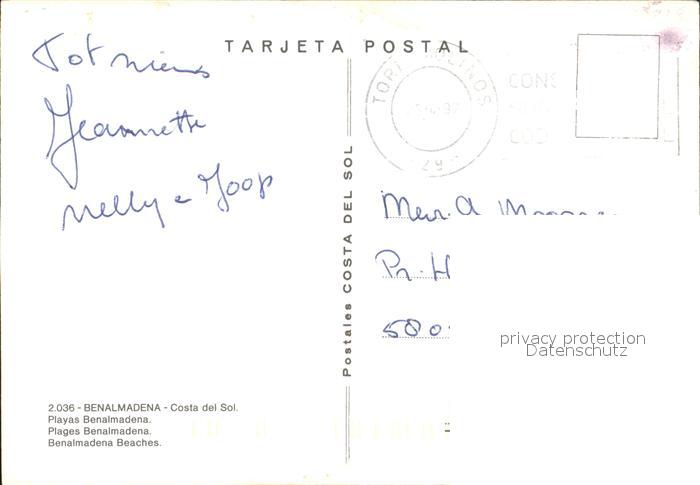 TARJETA POSTAL
Tot
Jeannette
Nelly e Joop
Postales COSTA DEL SOL
29
CONS
COD
Mevr. A
Pr. H
580
privacy protection
Datenschutz
2.036 - BENALMADENA - Costa del Sol.
Playas Benalmadena.
Plages Benalmadena.
Benalmadena Beaches.